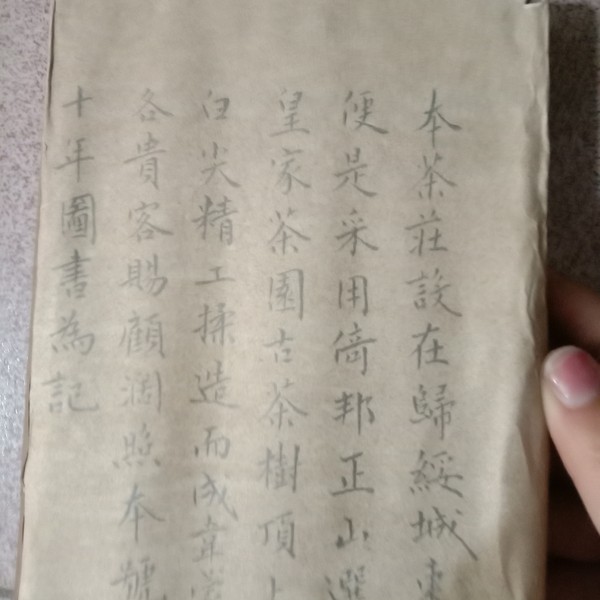 本茶莊設在歸綏城東
便是采用倚邦正山選
皇家茶園古茶樹頂上
白尖精工揉造而成韋
各貴客賜顧濶照本號
十年圖書為記